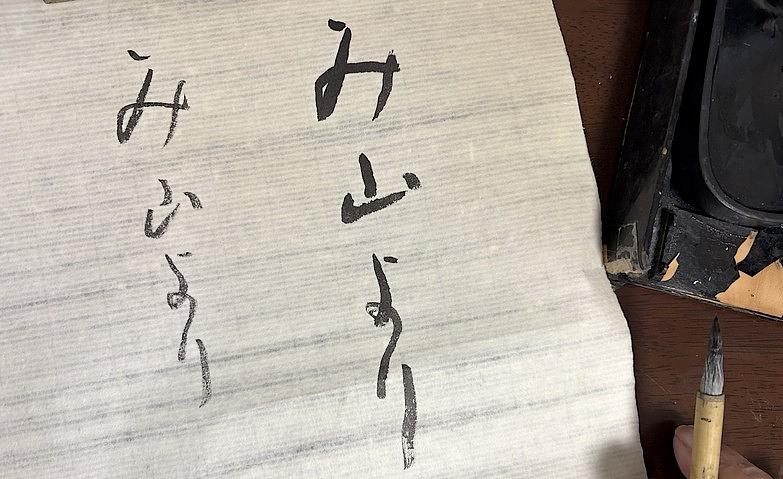 み山より
み山より